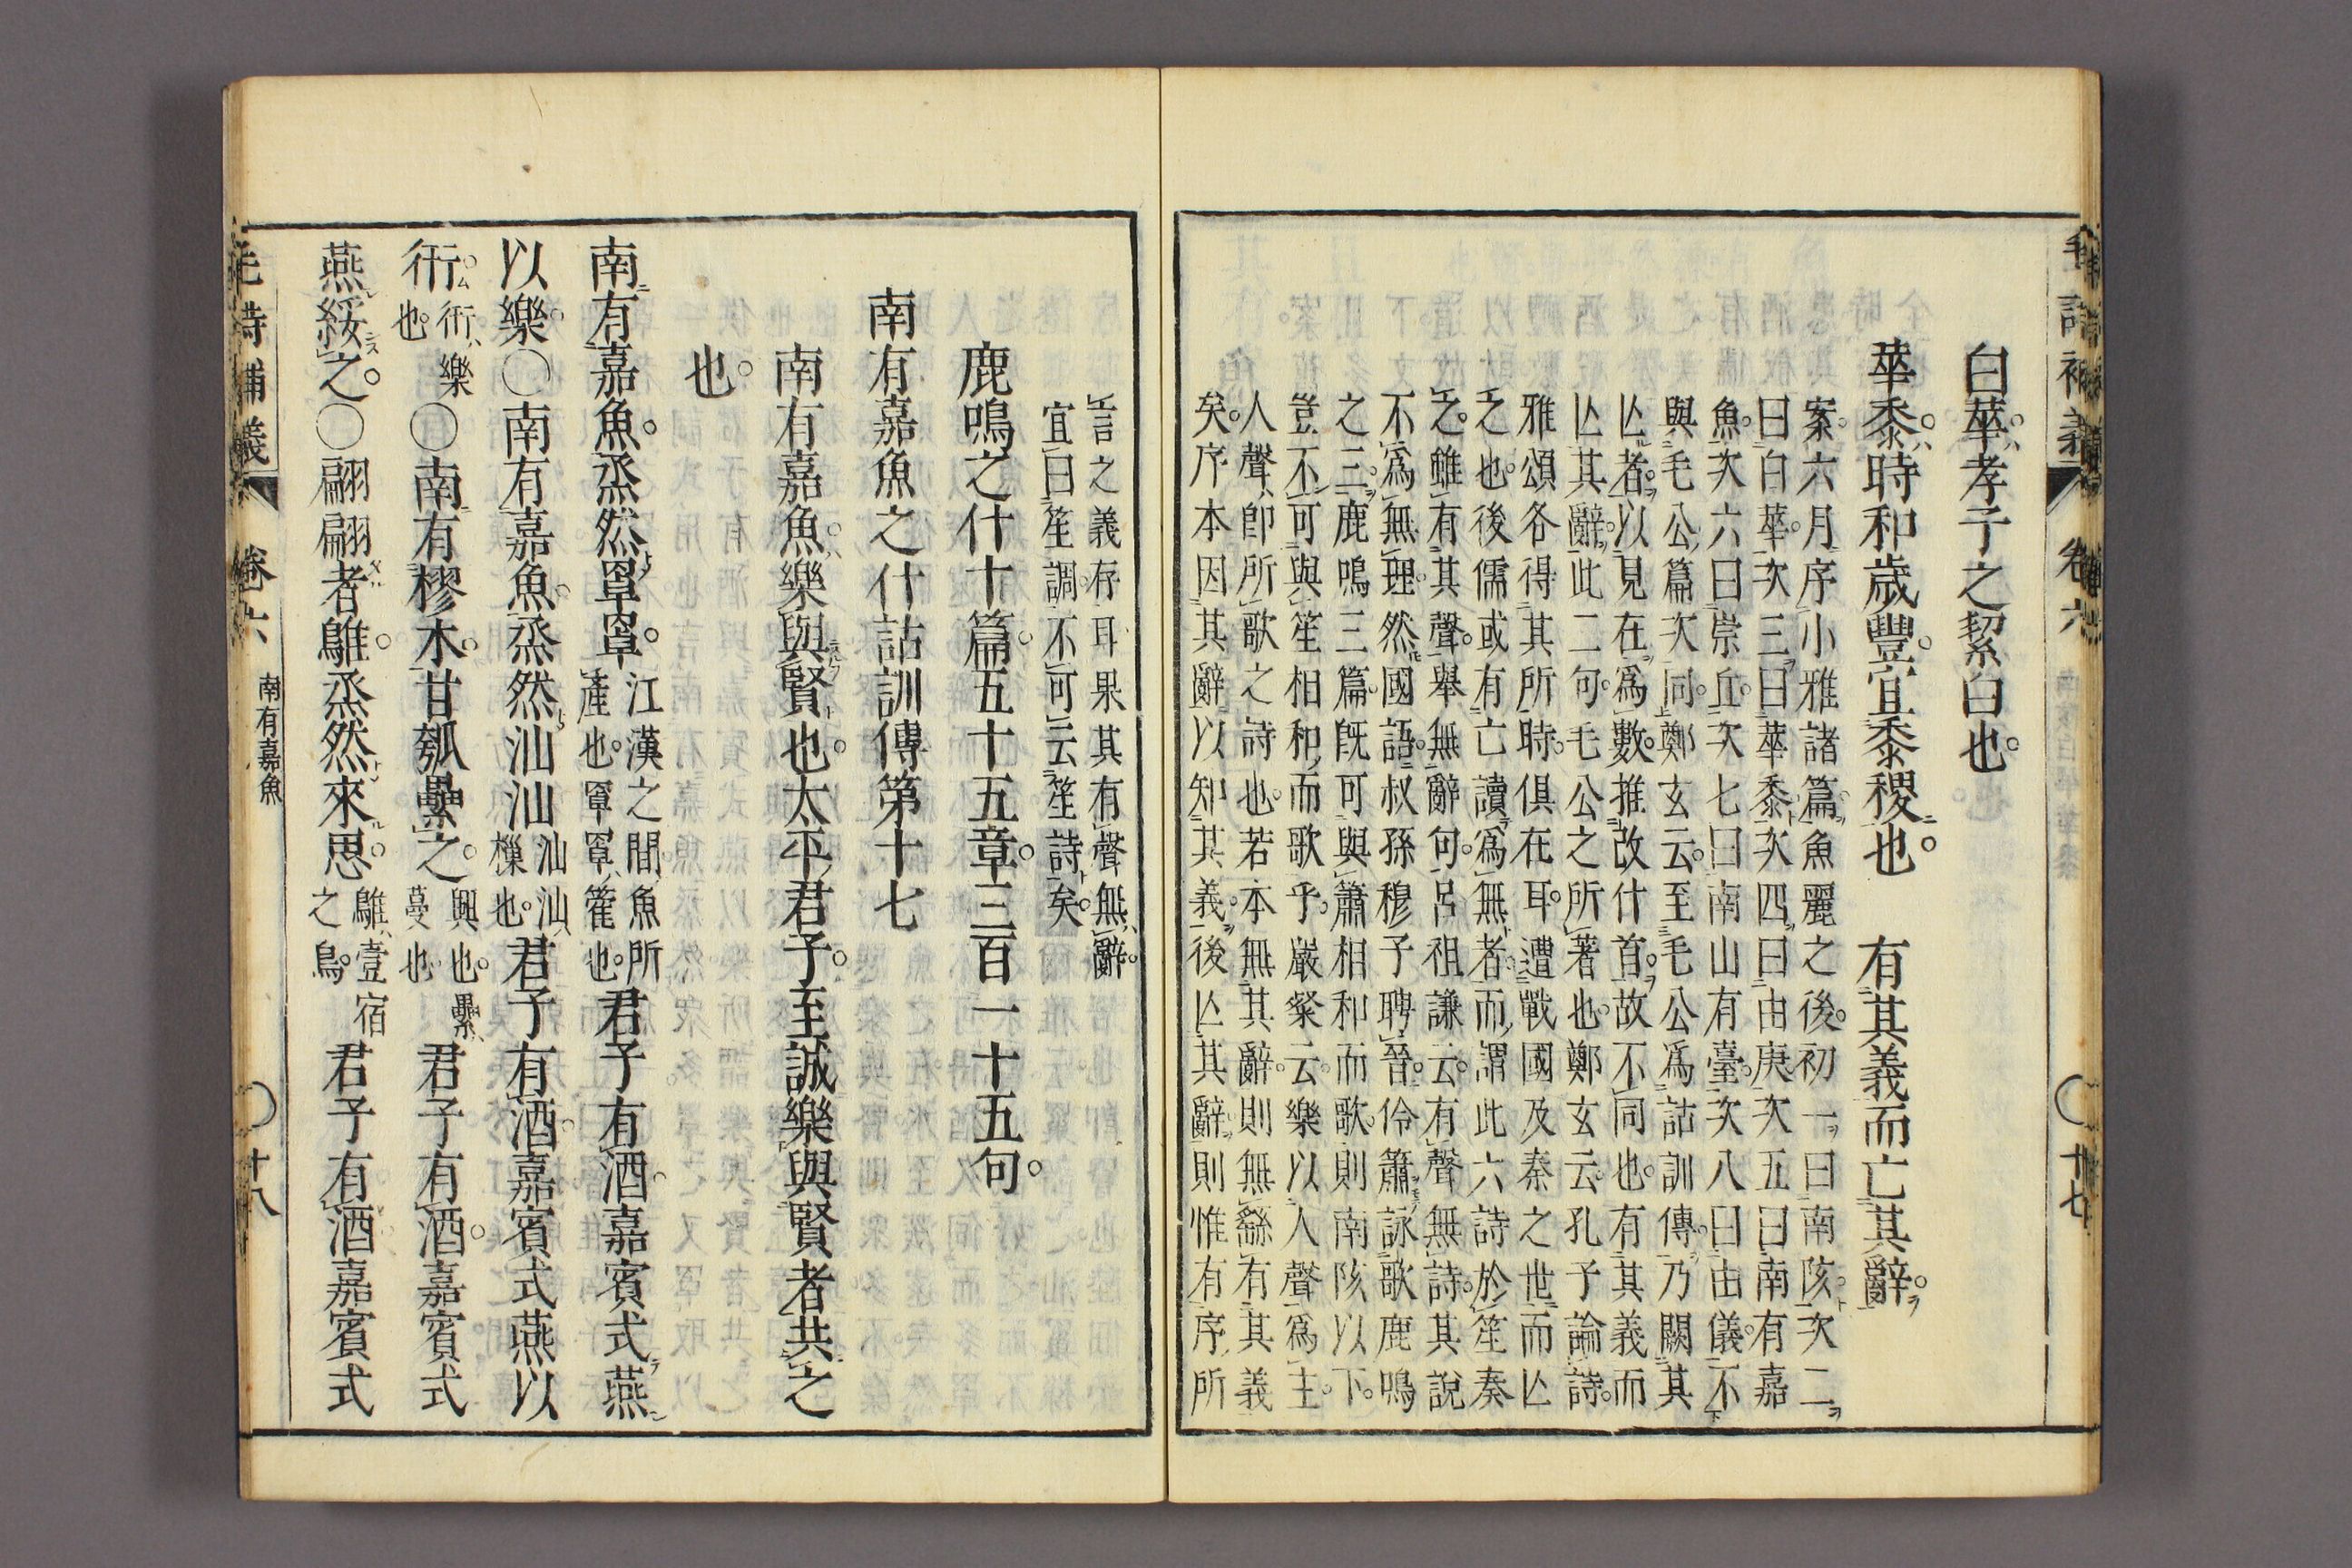 白華。孝子之絜白也。
華黍。時和歲豐。宜黍稷也。 有其義而亡其辭。
案。六月序小雅諸篇。魚麗之後。初一曰南陔。次二
曰白華。次三曰華黍。次四曰由庚。次五曰南有嘉
魚。次六曰崇丘。次七曰南山有臺。次八曰由儀。不
與毛公篇次同。鄭玄云。至毛公爲詁訓傳。乃闕其
亾者。以見在爲數。推改什首。故不同也。有其義而
亾其辭。此二句。毛公之所著也。鄭玄云。孔子論詩。
雅頌各得其所時。俱在耳。遭戰國及秦之世而亾
之也。後儒或有亡讀爲無者。而謂此六詩於笙奏
之。雖有其聲。擧無辭句。呂祖謙云。有聲無詩。其說
不爲無理。然國語。叔孫穆子聘晉。伶簫詠歌鹿鳴
之三。鹿鳴三篇。既可與簫相和而歌。則南陔以下。
豈不可與笙相和而歌乎。嚴粲云。樂以人聲爲主。
人聲卽所歌之詩也。若本無其辭。則無緜有其義
矣。序本因其辭以知其義。後亾其辭。則惟有序所
言之義存耳。果其有聲無辭。
宜曰笙調。不可云笙詩矣。
鹿鳴之什十篇。五十五章。三百一十五句。
南有嘉魚之什詁訓傳第十七
南有嘉魚。樂與賢也。太平君子。至誠樂與賢者共之
也。
南有嘉魚。烝然罩罩。江漢之間。魚所產也。罩罩。籗也。君子有酒。嘉賓式燕
以樂。○南有嘉魚。烝然汕汕汕汕。樔也。君子有酒。嘉賓式燕以
衎。衎。樂也。○南有樛木。甘瓠纍之。興也。纍。蔓也君子有酒。嘉賓式
燕綏之。○翩翩者鵻。烝然來思。鵻。壹宿之鳥。君子有酒。嘉賓式
毛詩補義 卷六 十七
毛詩補義 卷六 南有嘉魚 十八